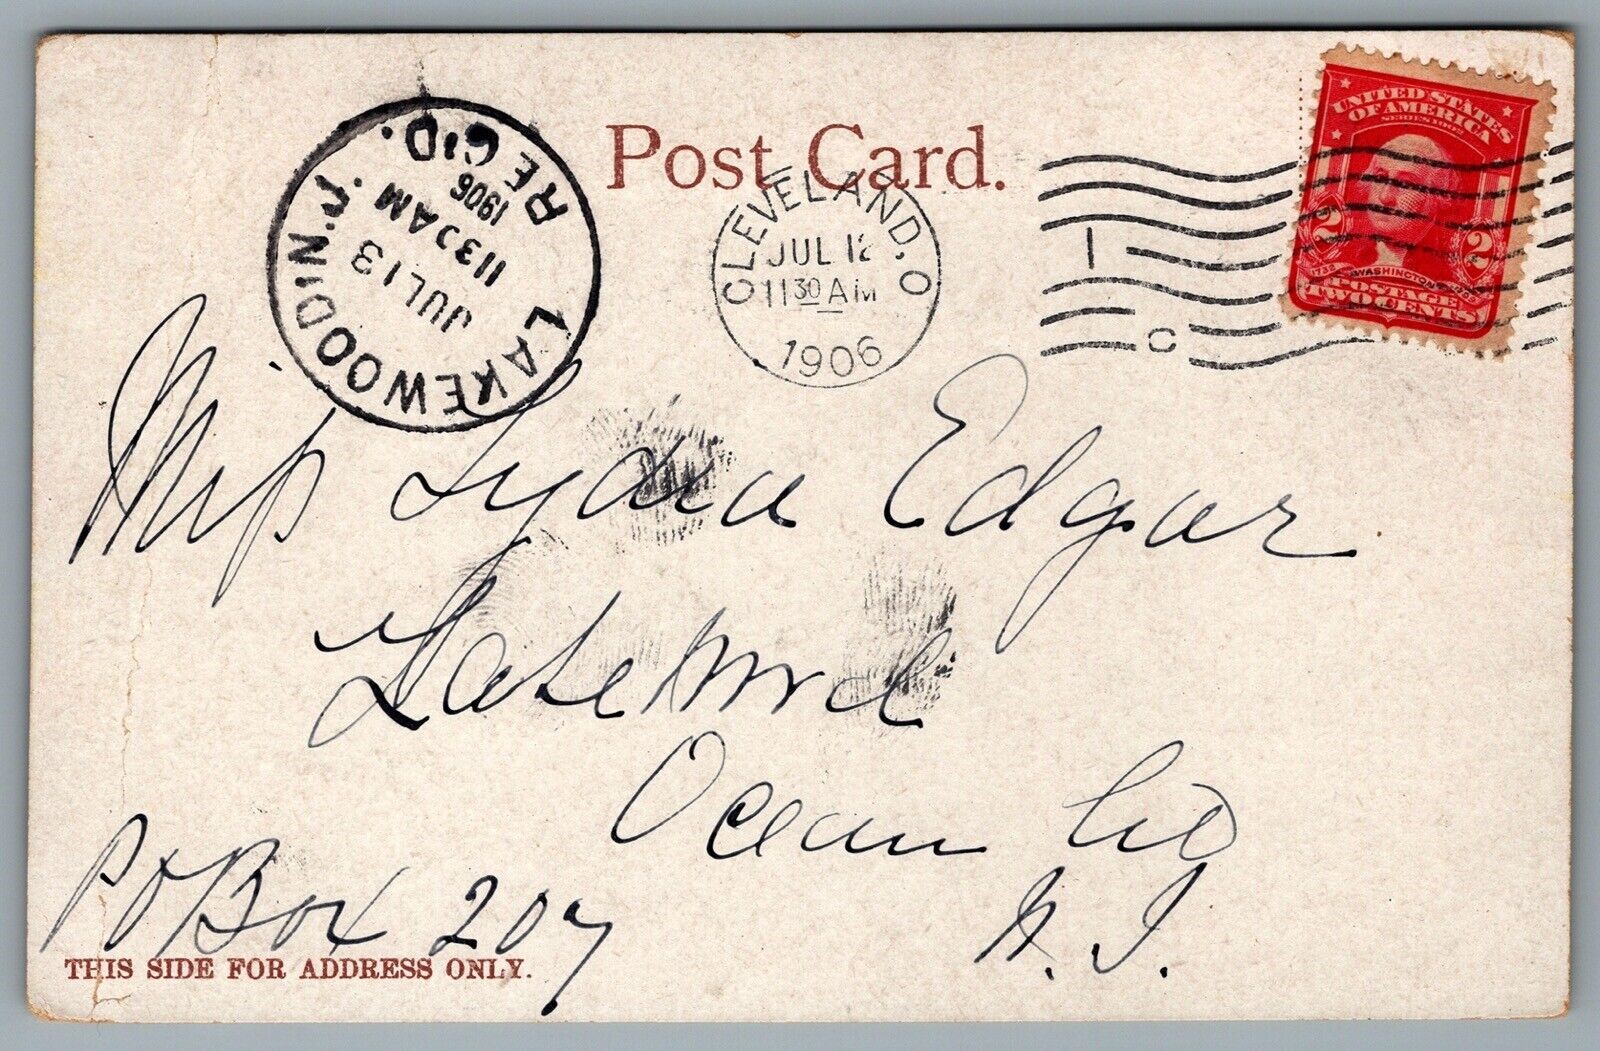 Post Card.
LAKEWOOD, N.J.
JUL 13
1130 AM
1906
REC'D.
CLEVELAND, O
JUL 12
11 30 AM
1906
1
C
UNITED STATES
OF AMERICA
SERIES 1902
2 2
1732 WASHINGTON 1799
POSTAGE
TWO CENTS
Miss Lydia Edgar
Lakewood
Ocean Co
N. J.
PO Box 207
THIS SIDE FOR ADDRESS ONLY.